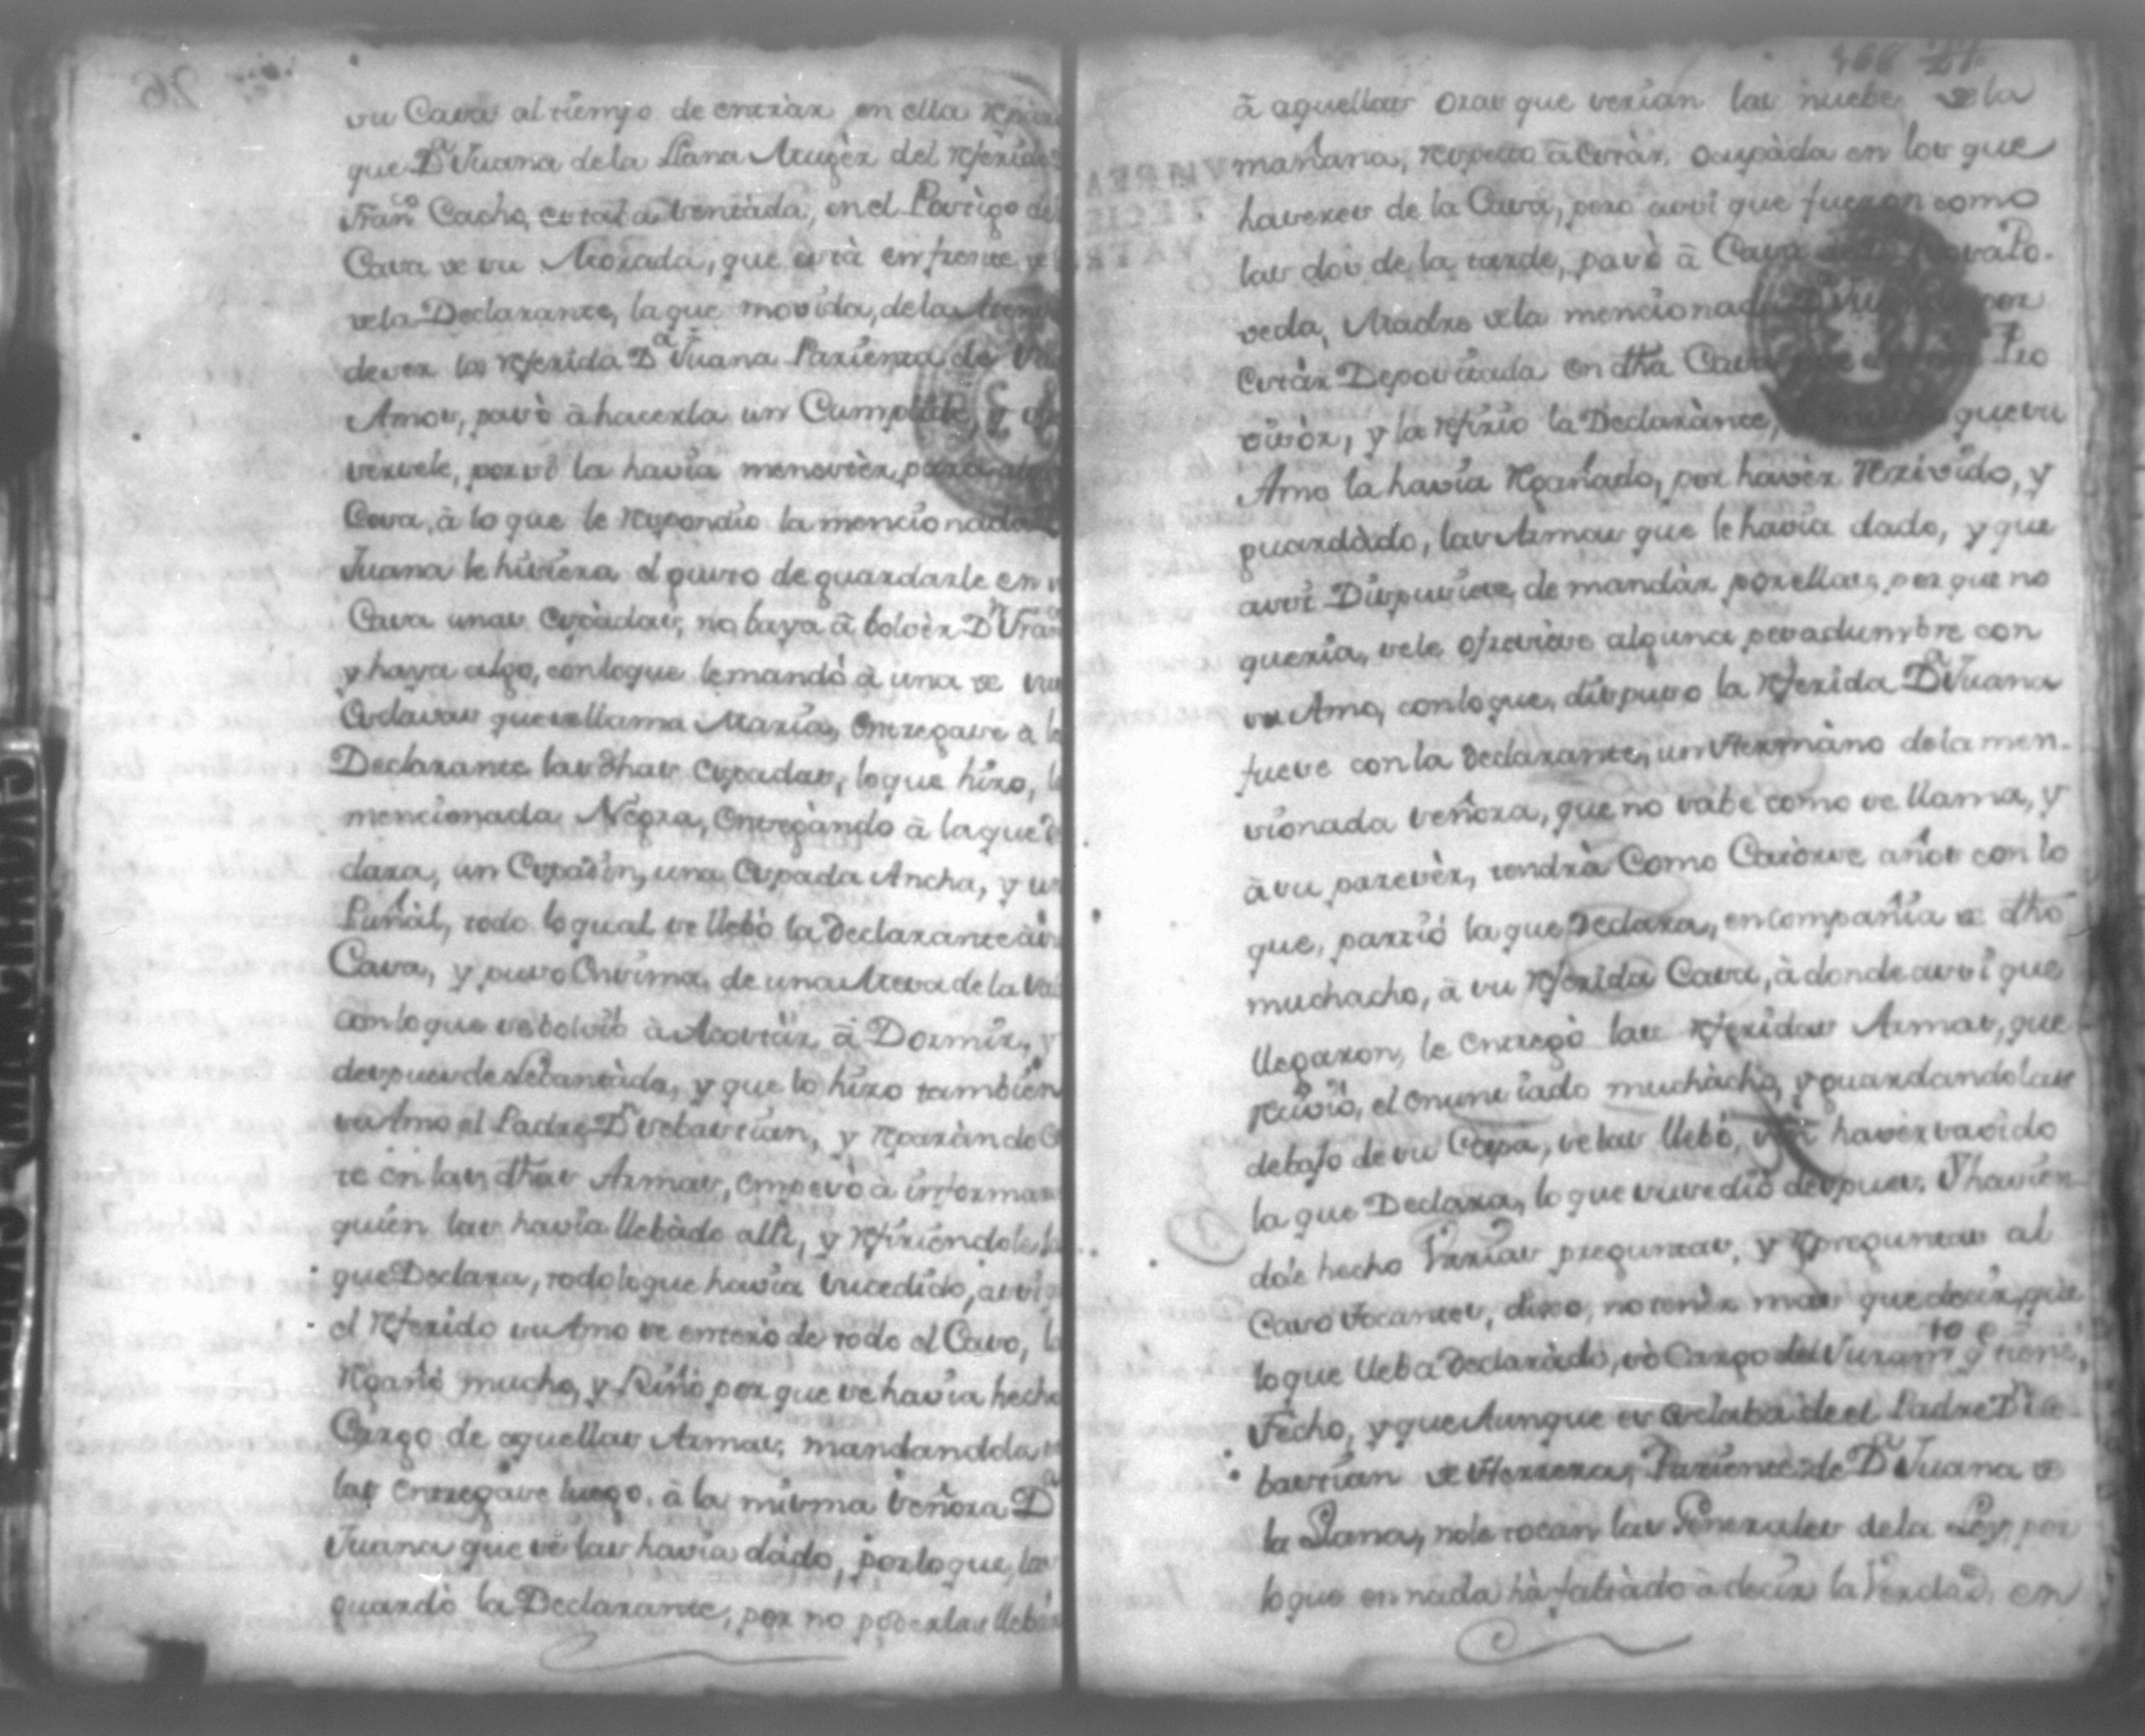 su Casa al tiempo de entràr en ella
que D.ª Juana de la Llana Mugèr del referido
Fran.co Cacho, estaba sentàda, en el Postigo de
Casa de su Morada, que està en frente
de la Declarante, la que movida, de la
de ser la referida D.ª Juana Parienta de
Amos, pasò â hacerla un Cumplido, y
sersele, por si la havia menestèr, para
Cosa, â lo que le respondio la mencionada
Juana le hiciera el gusto de guardarle en
Casa unas Espàdas, no baya â bolvèr D.n Fran
y haya algo, con lo que le mandò à una de sus
Esclavas que se llama Maria, entregase à la
Declarante las dhas Espadas, lo que hizo, la
mencionada Negra, Entregàndo â la que
clara, un Espadin, una Espada Ancha, y un
Puñàl, todo lo qual se llebò la Declarante â
Casa, y puso Ensima de una Mesa de la
con lo que se bolviò à Acostàr, â Dormir, y
despues de Lebantàda, y que lo hizo tambien
su Amo el Padre D.n Sebastian, y reparàndo
te en las dhas Armas, empesò à informar
quien las havia llebàdo alli, y refiriendole la
que Declara, todo lo que havia sucedido, asi
el referido su Amo se enterò de todo el Caso, la
regañò mucho, y Riñò por que se havia hecho
Cargo de aquellas Armas, mandandola
las entregase luego, à la misma señora D.ª
Juana que se las havia dàdo, por lo que, las
guardò la Declarante, por no poderlas llebàr
27
à aquellas oras que serian las nuebe de la
mañana, respecto â estàr, ocupàda en los que
haseres de la Casa, pero assi que fueron como
las dos de la tarde, pasò â Casa
veda, Madre de la mencionada D.ª Juana por
Estàr Depositada en dha Casa
visòr, y la refirio la Declarànte, que su
Amo la havia regañado, por havèr resivido, y
guardàdo, las Armas que le havia dado, y que
assi Dispusiese de mandàr por ellas, por que no
queria, se le ofresièse alguna pesadumbre con
su Amo, con lo que, dispuso la referida D.ª Juana
fuese con la declarante, un Hermàno de la men-
sionada señora, que no sabe como se llama, y
â su paresèr, tendrà Como Catòrse años con lo
que, partiò la que Declara, en compañia de dho
muchacho, â su referida Casa, à donde assi que
llegaron, le entregò las referidas Armas, que
resiviò, el enunciado muchàcho, y guardandolas
debajo de su Capa, se las llebò, sin havèr savido
la que Declara, lo que susedio despues. Y havien-
dole hecho Varias preguntas, y repreguntas al
Caso tocantes, dixo, no tenèr mas que decir, que
lo que lleba declaràdo, sò Cargo del Juram.to q.e tiene,
Fecho, y que Aunque es esclaba de el Padre D.n Se
bastian de Herrera, Pariente de D.ª Juana de
la Llana, no le tocan las Generales de la Ley, por
lo que en nada hà faltàdo à decir la Verdad, en